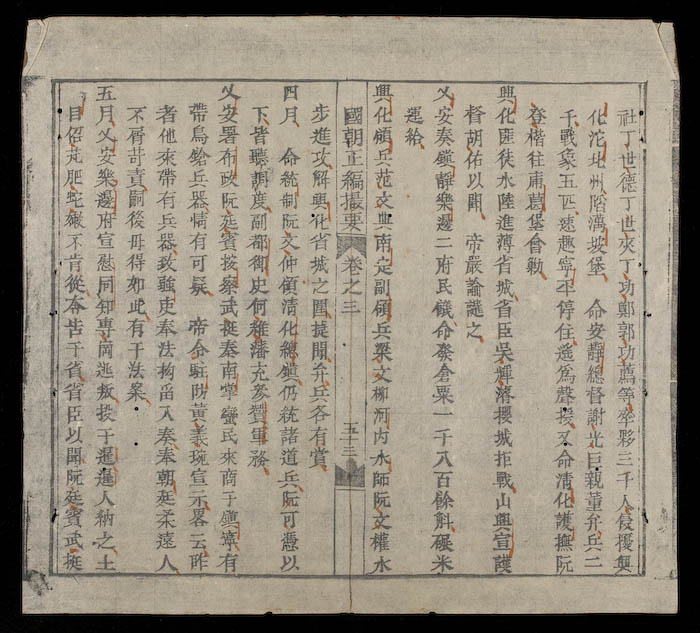 社丁世德丁世來丁功鄭郭功萬等率夥三千人侵擾興
化沱北州陷萬坡堡 命安靜總督謝光巨親董弁兵二
千戰象五匹速趣寧平停住遙爲聲援又命清化護撫阮
登楷往甫葛堡會勦
興化匪徒水陸進薄省城省臣吳輝濬攖城拒戰山興宣護
督胡佑以聞 帝嚴諭護之
乂安奏鎮靜樂邊二府民饑命發倉粟一千八百餘斛碾米
運給
興化領兵范文典南定副領兵梁文柳河內水師阮文權水
國朝正編撮要 卷之三 五十三
步進攻解興化省城之圍捷聞弁兵各有賞
四月 命統制阮文仲領清化總鎮仍統諸道兵阮可憑以
下皆聽調度副都御史何維藩充參贊軍務
乂安署布政阮廷賓按察武挺奏南掌蠻民來商于鎮寧有
帶鳥鎗兵器情有可疑 帝命駐防黃義琬宣示畧云昨
者他來帶有兵器致疆吏奉法拘留入奏奉朝廷柔遠人
不屑苛責嗣後毋得如此有干法案
五月乂安樂邊府宣慰同知專南逃叛投于暹暹人納之土
目侶芃肥蛇 不肯從奔告于省省臣以聞阮廷賓武挺